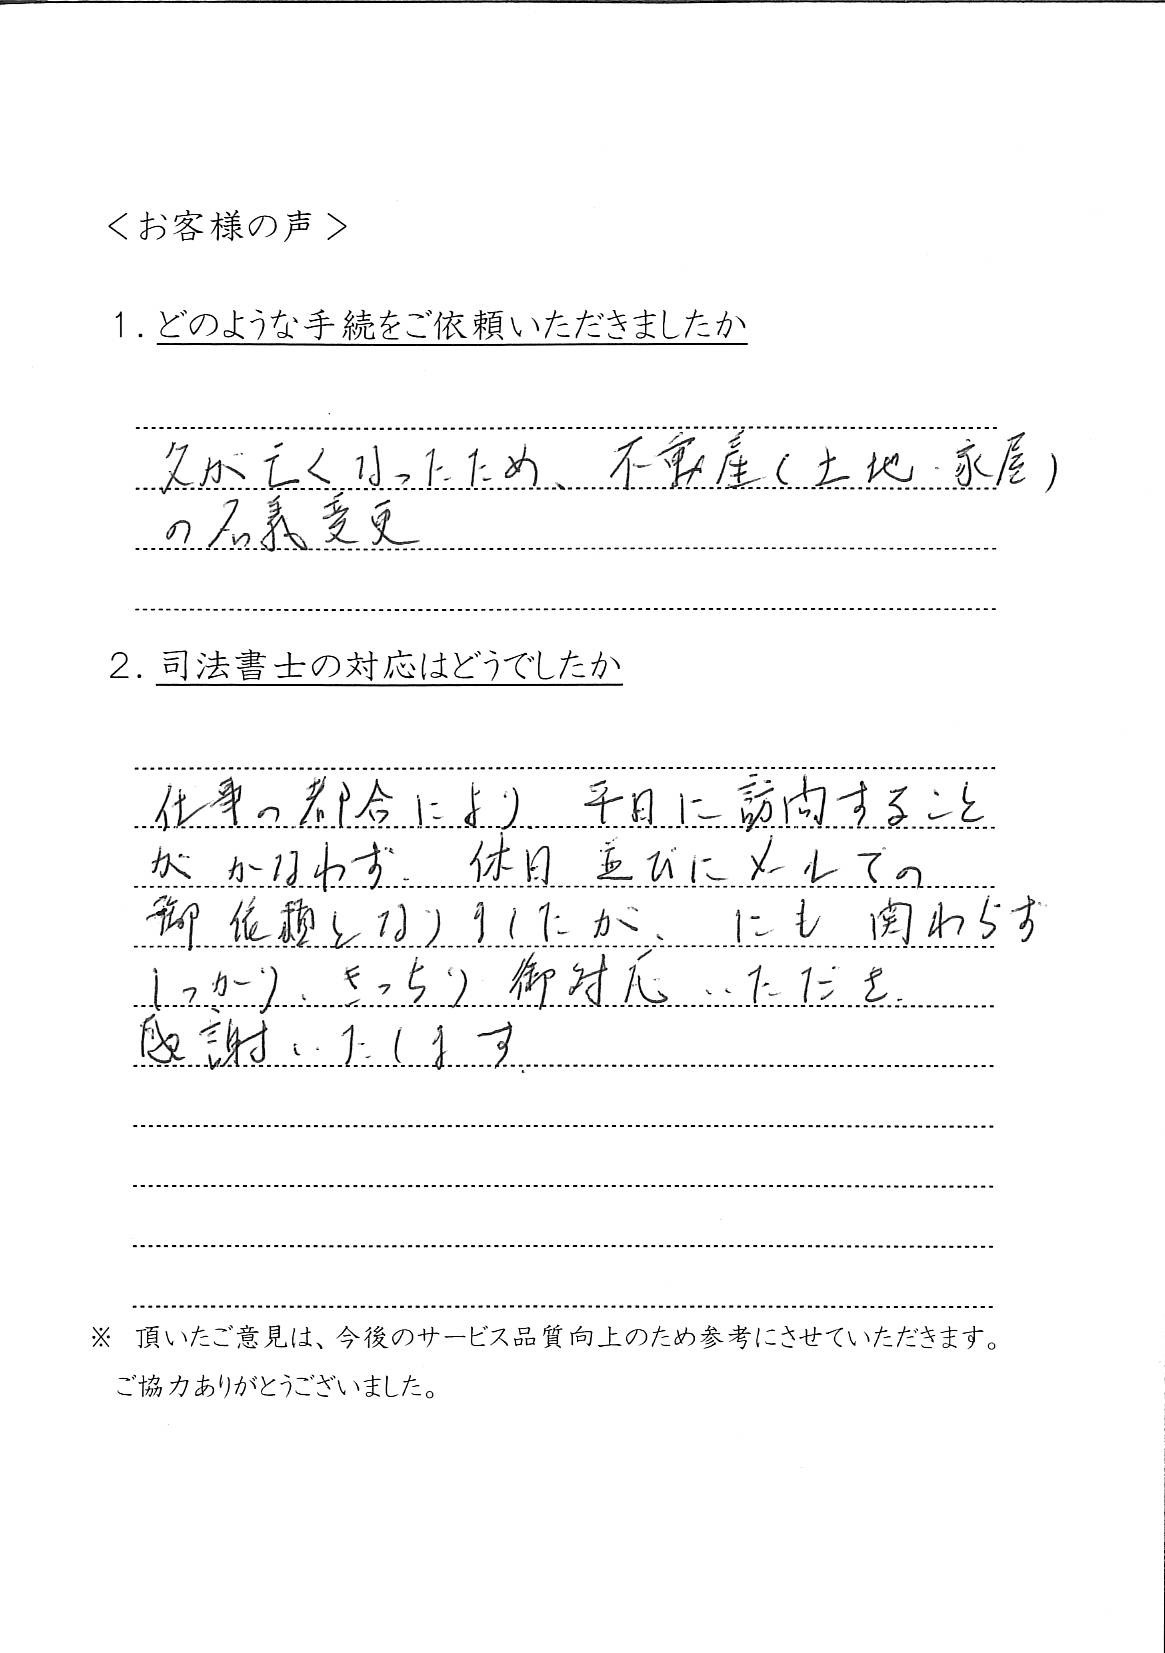 ＜お客様の声＞
１．どのような手続をご依頼いただきましたか
父が亡くなったため、不動産(土地・家屋)
の名義変更
２．司法書士の対応はどうでしたか
仕事の都合により、平日に訪問すること
がかなわず、休日並びにメールでの
御依頼となりましたが、にも関わらず
しっかり、きっちり御対応いただき、
感謝いたします。
※　頂いたご意見は、今後のサービス品質向上のため参考にさせていただきます。
ご協力ありがとうございました。